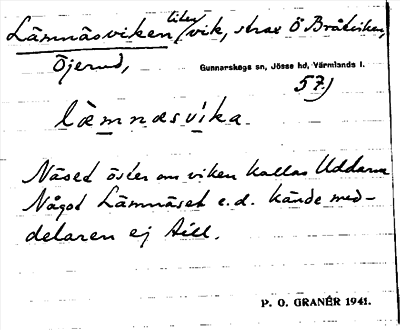 Lämnäsviken liten/vik, strax Ö Bråtviken,
Öjerud,
Gunnarskogs sn, Jösse hd, Värmlands l.
57)
làmnæsvika
Näset öster om viken kallas Uddarna
Något Lämnäset e.d. kände med-
delaren ej till.
P. O. GRANÉR 1941.